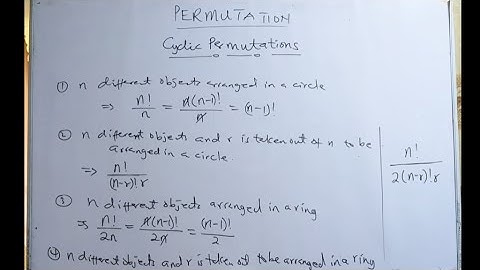 PERMUTATION
Cyclic Permutations
① n different objects arranged in a circle
⇒ n!/n = n(n-1)!/n = (n-1)!
② n different objects and r is taken out of n to be
arranged in a circle.
⇒ n!/(n-r)!r
③ n different objects arranged in a ring
⇒ n!/2n = n(n-1)!/2n = (n-1)!/2
④ n different objects and r is taken out to be arranged in a ring
n!/2(n-r)!r